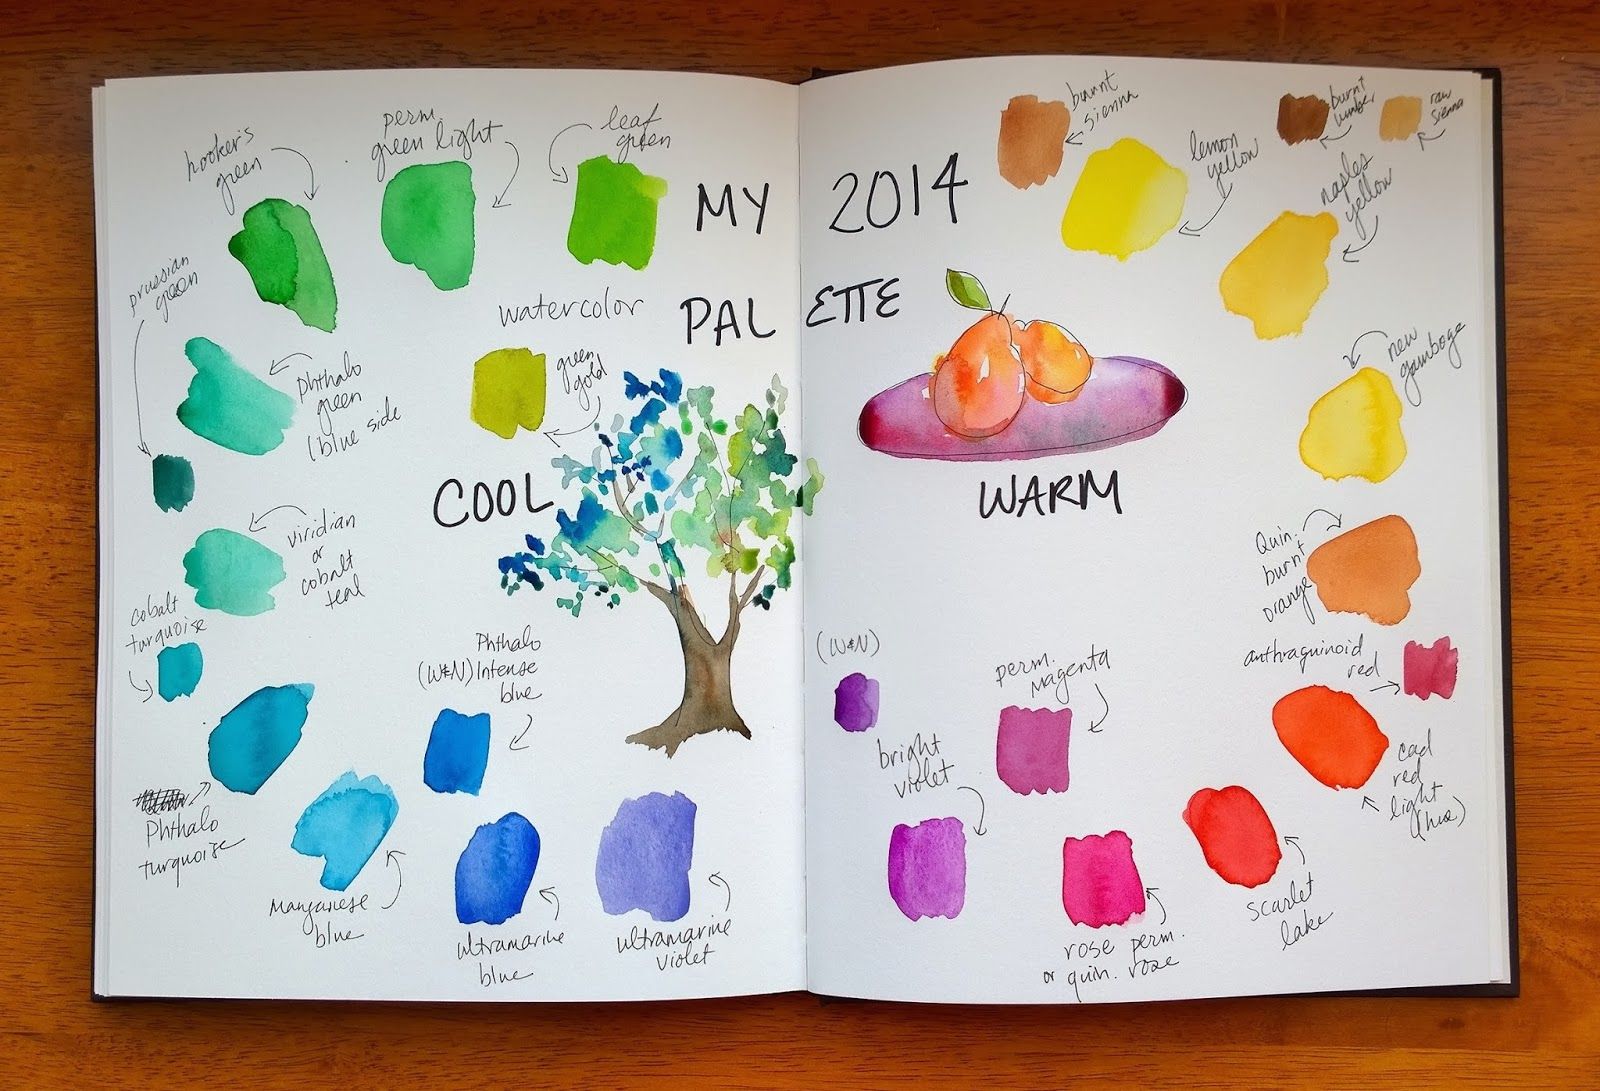 MY 2014
PALETTE
watercolor
COOL
hooker's
green
perm.
green light
leaf
green
prussian
green
phthalo
green
(blue side
green
gold
viridian
or
cobalt
teal
cobalt
turquoise
Phthalo
(W&N) Intense
blue
Phthalo
turquoise
Manganese
blue
ultramarine
blue
ultramarine
violet
WARM
burnt
sienna
lemon
yellow
burnt
umber
raw
sienna
naples
yellow
new
gamboge
Quin.
burnt
orange
anthraquinoid
red
cad
red
light
(hue)
scarlet
lake
(W&N)
perm.
Magenta
bright
violet
rose perm.
or quin. rose